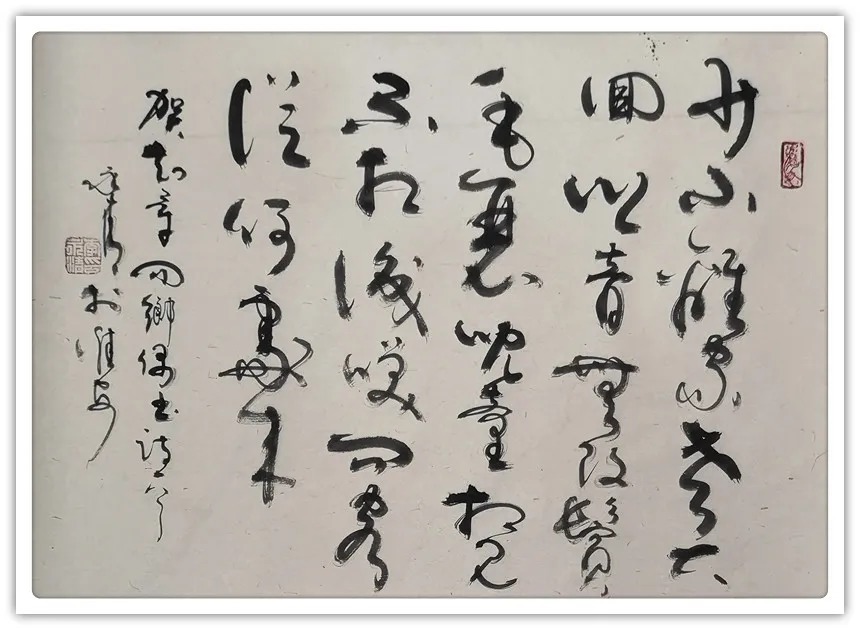 少小離家老大
回鄉音無改鬢
毛衰兒童相見
不相識咲問客
從何處来
賀知章回鄉偶書詩一首
於淮安